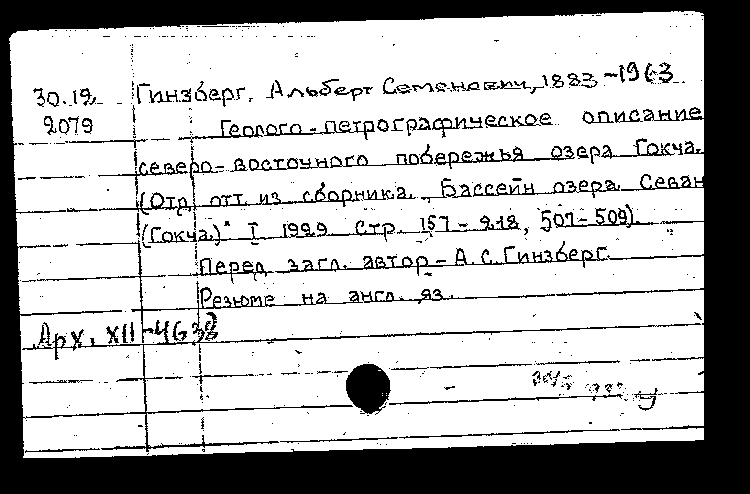 30.12 Гинзберг, Альберт Семенович, 1883-1963
2079 Геолого-петрографическое описание
северо-восточного побережья озера Гокча.
(Отд. отт. из сборника „Бассейн озера Севан
(Гокча)" I 1929 Стр. 157-218, 507-509).
Перед загл. автор - А.С. Гинзберг.
Резюме на англ. яз.
Арх. XII-4638